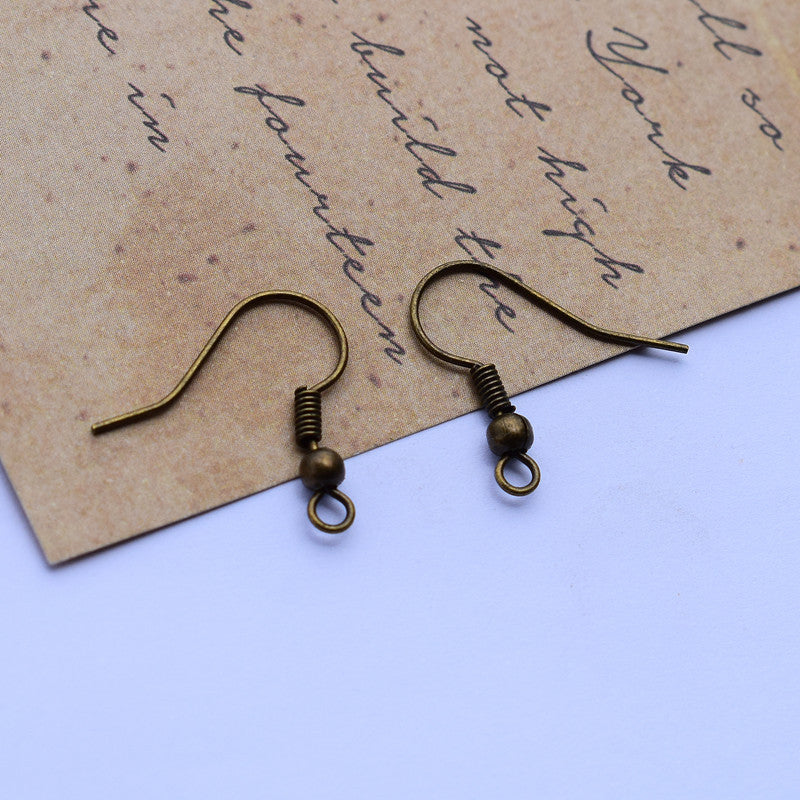 ll so
York
not high
build the
he fourteen
e in